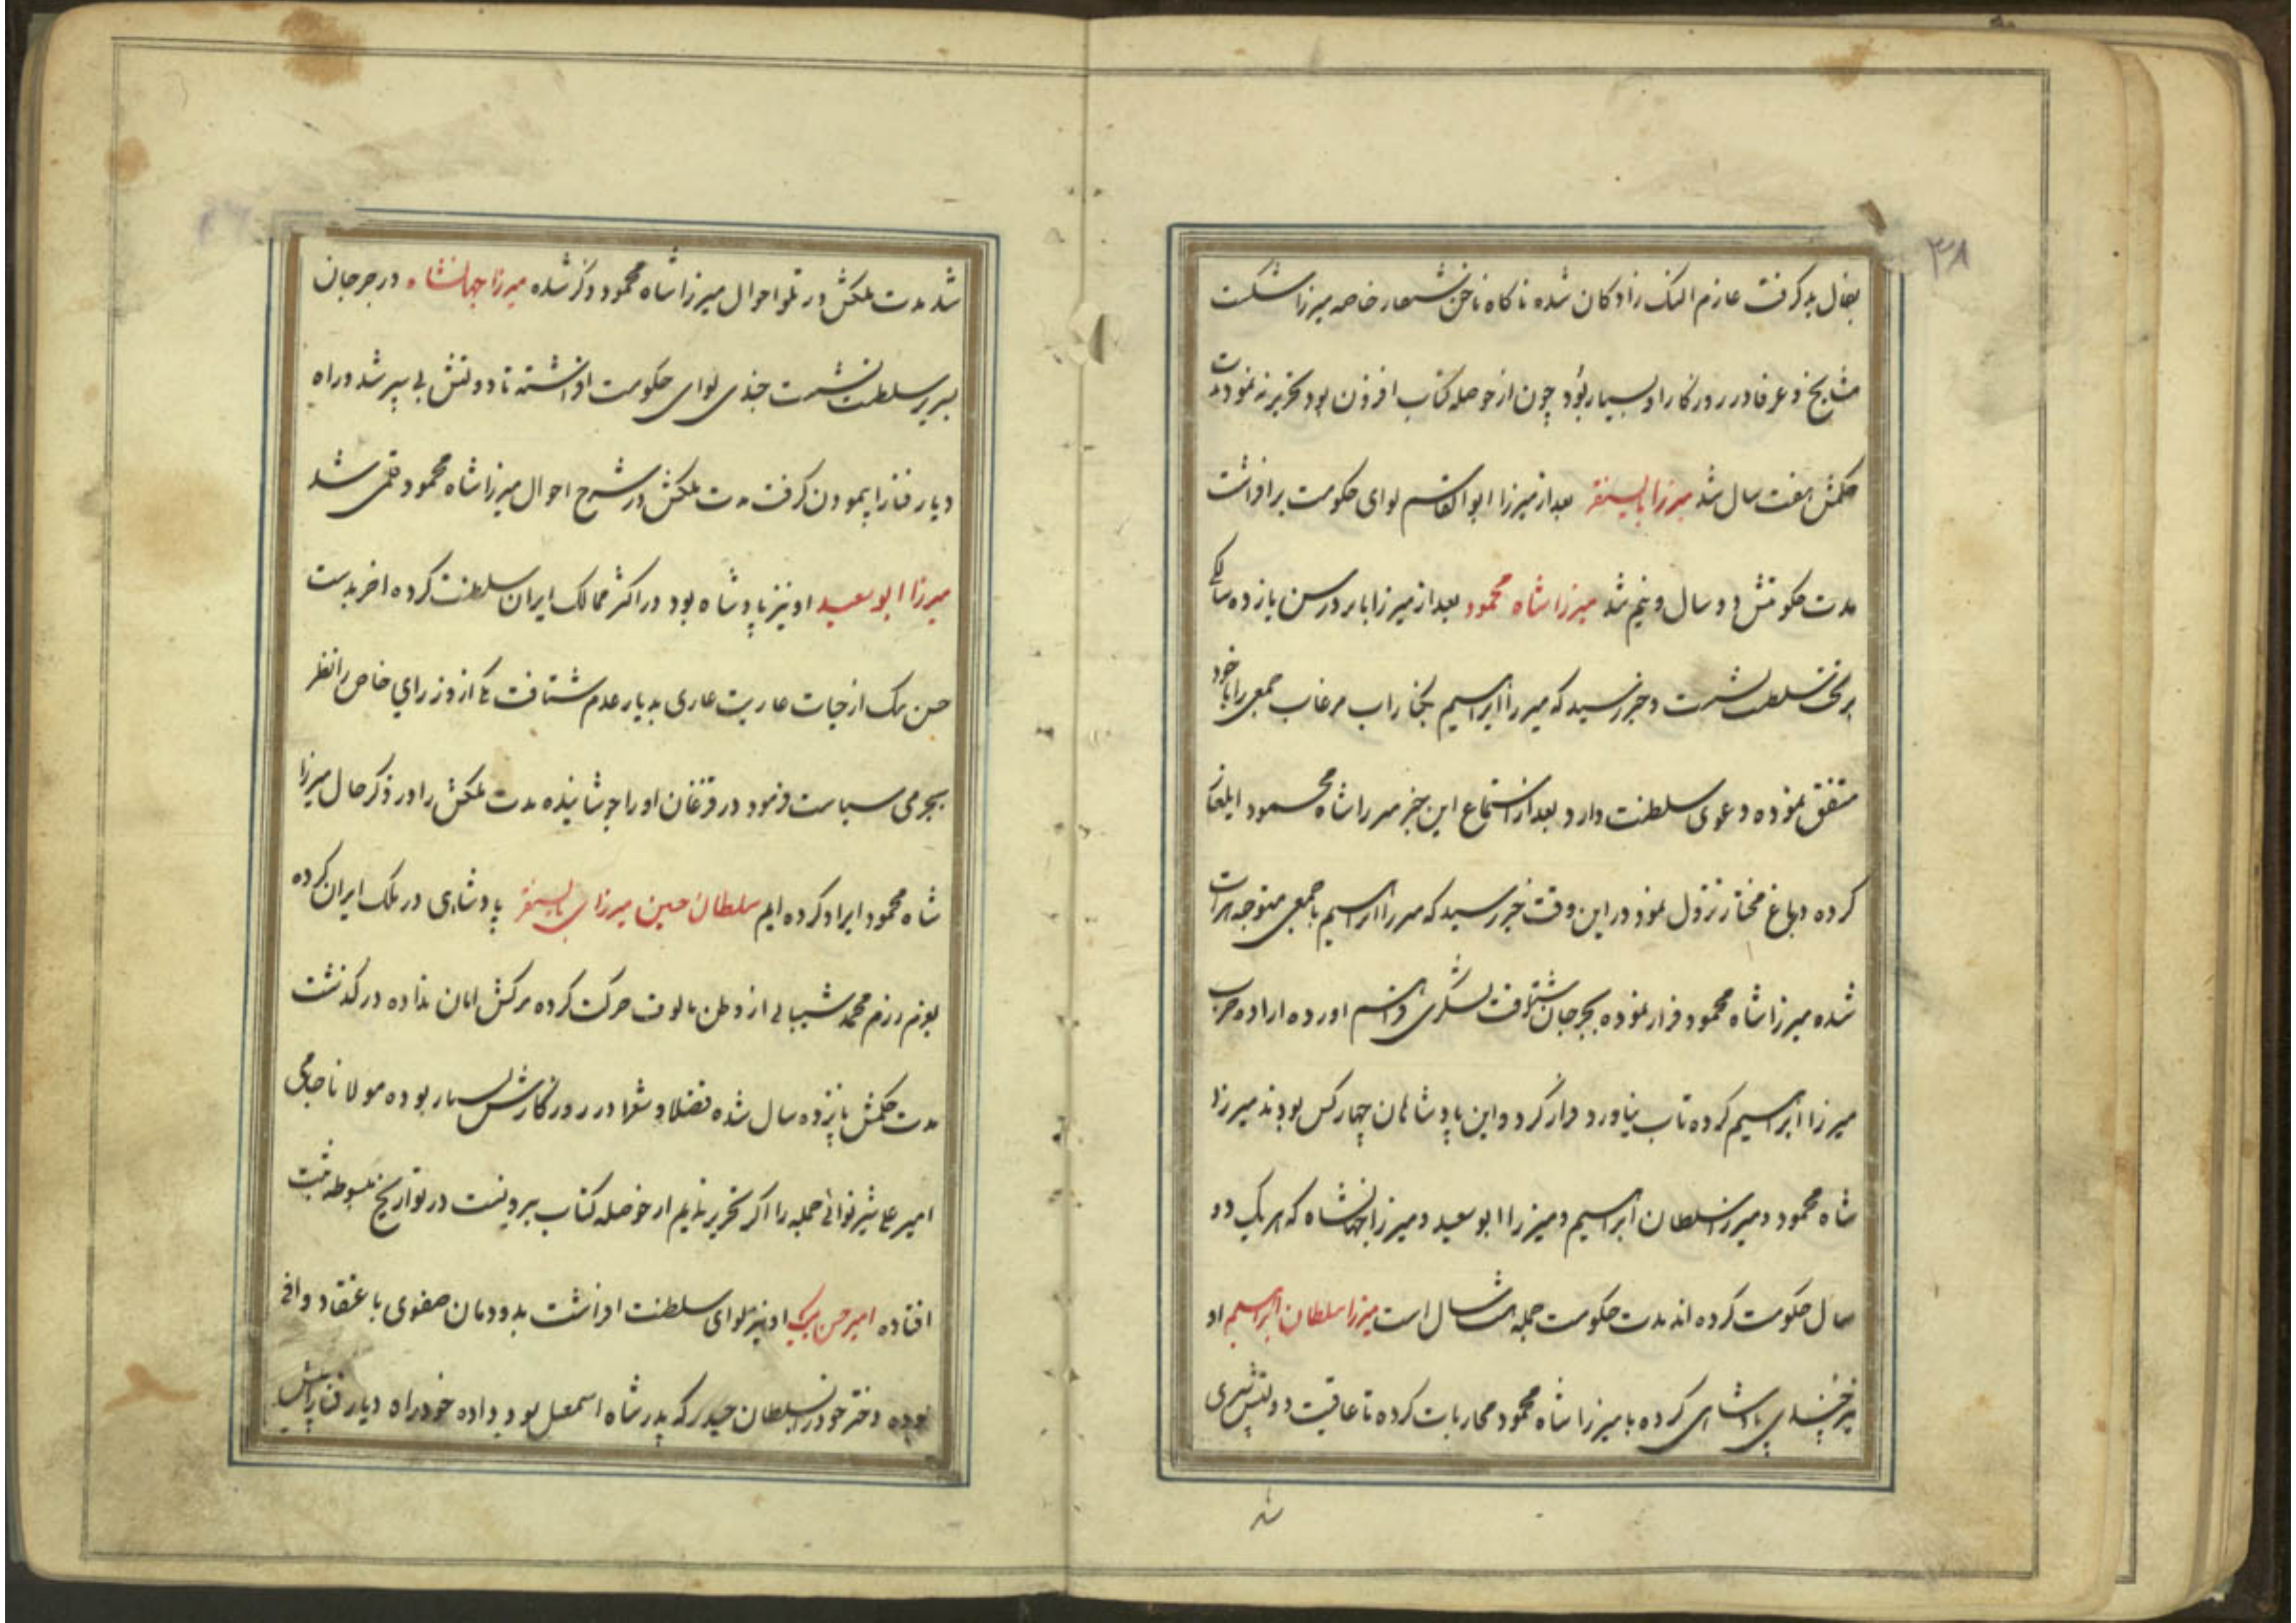 ۳۸
بفال بد گرفت عازم النک رادکان شده ناکاه ناخن شعار خاصه میرزا شکست
مشایخ و عرفا در روزکار او بسیار بود چون از حوصله کتاب افزون بود تحریر ننمود مدت
حکمش هفت سال شد میرزا بایسنقر بعد از میرزا ابوالقاسم لوای حکومت برافراشت
مدت حکومتش دو سال و نیم شد میرزا شاه محمود بعد از میرزا بابر در سن یازده سالکی
بر تخت سلطنت نشست و خبر رسید که میرزا ابراهیم بکنار اب مرغاب جمعی را با خود
متفق نموده دعوی سلطنت دارد بعد از استماع این خبر میرزا شاه محمود ایلغار
کرده بباغ مختار نزول نمود در این وقت خبر رسید که میرزا ابراهیم با جمعی متوجه هرات
شده میرزا شاه محمود فرار نموده بجرجان شتافت لشکری فراهم اورده اراده حرب
میرزا ابراهیم کرده تاب نیاورد فرار کرد و این پادشاهان چهار کس بودند میرزا
شاه محمود و میرزا سلطان ابراهیم و میرزا ابوسعید و میرزا جهانشاه که هر یک دو
سال حکومت کرده اند مدت حکومت جمله هشت سال است میرزا سلطان ابراهیم او
نیز چندی پادشاهی کرده با میرزا شاه محمود محاربات کرده تا عاقبت دولتش سپری
شد
شد مدت ملکش در تلو احوال میرزا شاه محمود ذکر شده میرزا جهانشاه در جرجان
بسریر سلطنت نشست چندی لوای حکومت افراشته تا دولتش بی سپر شد و راه
دیار فنا را پیمودن گرفت مدت ملکش در شرح احوال میرزا شاه محمود رقمی شد
میرزا ابوسعید او نیز پادشاه بود در اکثر ممالک ایران سلطنت کرده اخر بدست
حسن بیک از حیات عاریت عاری بدیار عدم شتافت یکی از وزرای خاص را نظر
بجرمی سیاست فرمود در قزغان او را جوشانیده مدت ملکش را در ذکر حال میرزا
شاه محمود ایراد کرده ایم سلطان حسین میرزا بن بایسنقر پادشاهی در ملک ایران کرده
بعزم رزم محمد شیبانی از وطن مالوف حرکت کرده مرکش امان نداده در گذشت
مدت حکمش پانزده سال شده فضلا و شعرا در روزکارش بسیار بوده مولانا جامی
امیر علی شیر نوائی جمله را اگر تحریر نمایم از حوصله کتاب بیرونست در تواریخ مبسوطه ثبت
افتاده امیر حسن بیک او نیز لوای سلطنت افراشت بدودمان صفوی با عتقاد وافی
بوده دختر خود را بسلطان حیدر که پدر شاه اسمعیل بود داده خود راه دیار فنا را پیش